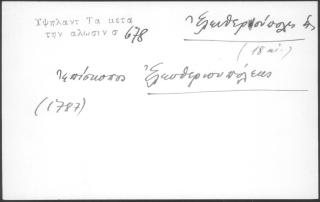 Υψηλαντ Τα μετα
την αλωσιν σ 678
Ἐλευθερουπόλεως
(18 αἰ.)
ἐπίσκοπος Ἐλευθεριουπόλεως
(1787)